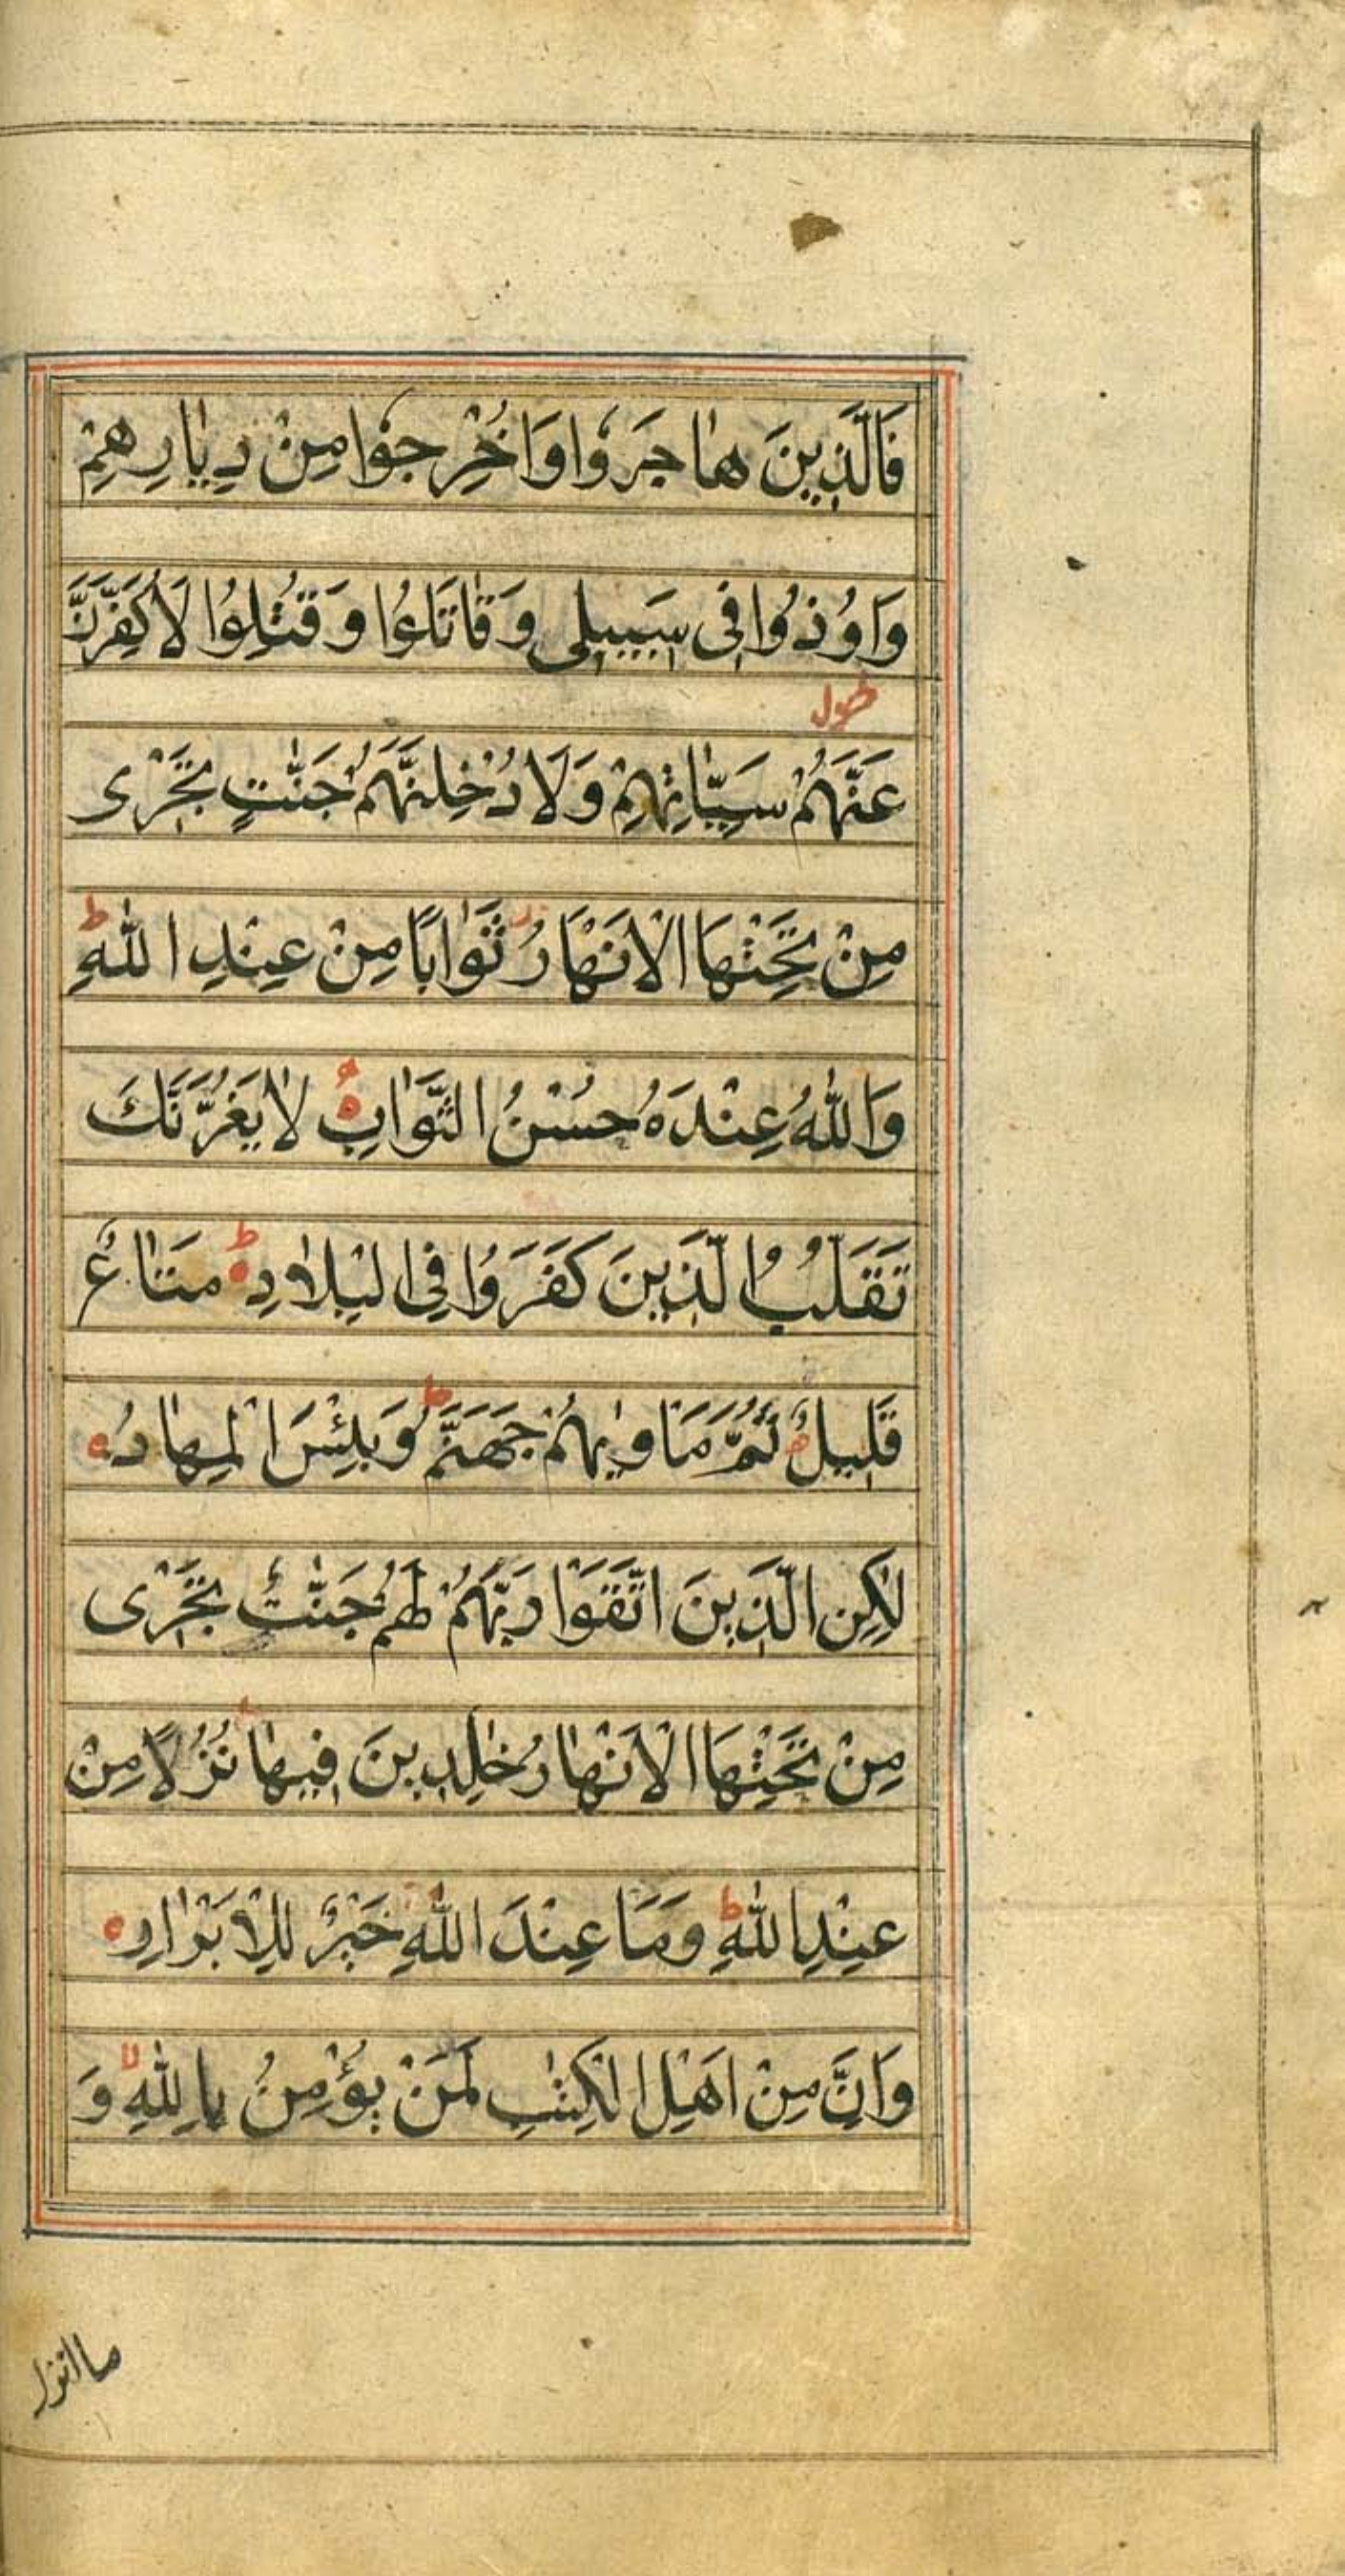 فَالَّذِينَ هٰاجَرُوا وَاُخْرِجُوا مِنْ دِيٰارِهِمْ
وَاُوذُوا فِى سَبِيلِى وَقٰاتَلُوا وَقُتِلُوا لَاُكَفِّرَنَّ
طول
عَنْهُمْ سَيِّاٰتِهِمْ وَلَاُدْخِلَنَّهُمْ جَنّٰتٍ تَجْرٖى
مِنْ تَحْتِهَا الْاَنْهَارُ ثَوَابًا مِنْ عِنْدِ اللّٰهِ ط
وَاللّٰهُ عِنْدَهُ حُسْنُ الثَّوَابِ ه لٰا يَغُرَّنَّكَ
تَقَلُّبُ الَّذِينَ كَفَرُوا فِى الْبِلٰادِ ه ط مَتٰاعٌ
قَلِيلٌ ثُمَّ مَاْوٰيهُمْ جَهَنَّمُ ط وَبِئْسَ الْمِهٰادُ ه
لٰكِنِ الَّذِينَ اتَّقَوْا رَبَّهُمْ لَهُمْ جَنّٰتٌ تَجْرٖى
مِنْ تَحْتِهَا الْاَنْهٰارُ خٰلِدِينَ فِيهٰا نُزُلًا مِنْ
عِنْدِ اللّٰهِ ط وَمَا عِنْدَ اللّٰهِ خَيْرٌ لِلْاَبْرٰارِ ه
وَاِنَّ مِنْ اَهْلِ الْكِتٰبِ لَمَنْ يُؤْمِنُ بِاللّٰهِ لا وَ
ما انزل